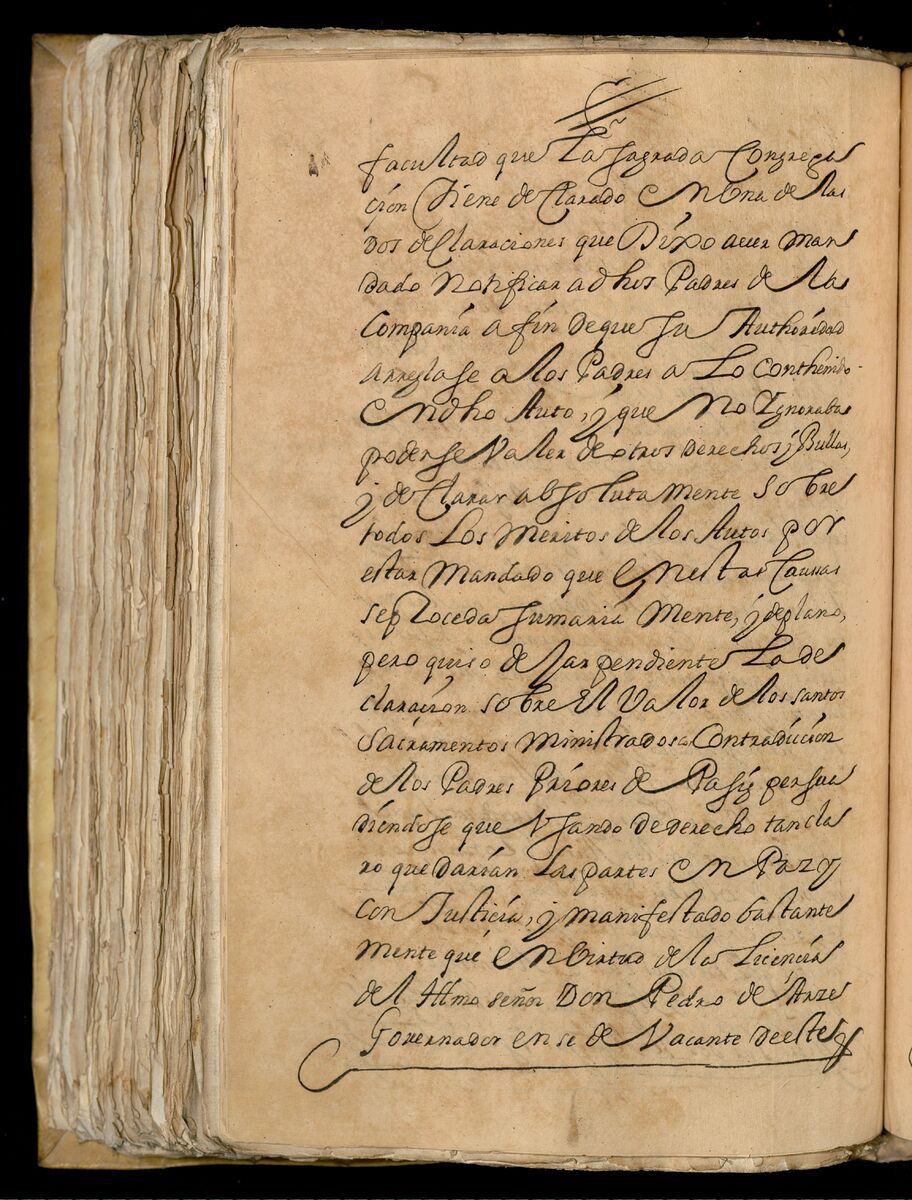 facultad que La sagrada Congrega
cion tiene de Clarado En Una de las
dos de Claraciones que Dixo aver man
dado Notificar a dhos Padres de la
Compania a fin de que su Authoridad
arreglase a los Padres a Lo Conthenido
En dho Auto, j que No Ignoraba
poderse Valer de otros derechos j Bullas,
j de Clarar absoluta mente sobre
todos Los Meritos de los Autos por
estar Mandado que En estas Caussas
se proceda sumaria Mente, j de plano,
pero quiso dejar pendiente La de
claracion sobre El Valor de los santos
Sacramentos Ministrados a Contradiccion
de los Padres Priores de Pasig persua
diendose que Usando de derecho tan cla
ro quedarian Las partes En Paz y
con Justicia, j manifestado bastante
mente que En Virtud de la Licencia
del Illmo señor Don Pedro de Arze
Governador en se de Vacante de este